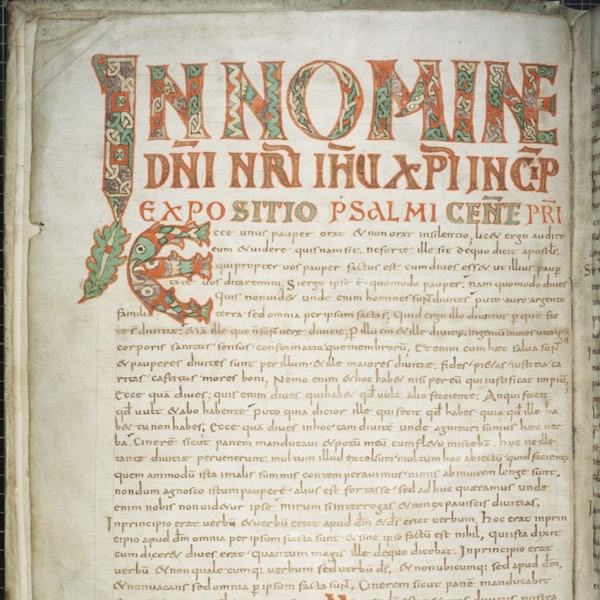 IN NOMINE
DN̄I NR̄I IH̄U XP̄I INCIP̄
EXPOSITIO PSALMI CENTE PRI
Ecce unus pauper orat & non orat insilentio, lic& ergo audire
eum & uidere quisnam sit. neforte ille sit dequo dicit apostls.
quipropter uos pauper factus est cum dives ess& ut illius paup
tate uos ditaremini. Si ergo ipse ē quomodo pauper. nam quomodo dives
quis non uid& unde enim homines sunt divites puto auro argento
familia terra sed omnia per ipsum facta sunt. Quid ergo illo ditius p que fac
te st divitiae & ia ille que n sunt verae divitiae. p illum eni & ille divitiae ingenium
corporis sanitas sensus conformatio que membrorū, Etenim cum haec salua sunt
& pauperes divites sunt per illum & ille maiores divitiae, fides pi&as iustitia ca
ritas castitas mores boni. Nemo enim & hoc hab& nisi per eū qui iustificat impiū,
Ecce quā dives, quis enim dives qui hab& qd uult alio faciente. An qui facit
qd uult & abo habente. Puto quia ditior ille qui fecit qd habes quia qd ille ha
b& tu non habes, Ecce quā dives in hoc tam divite unde agnituri sumus haec uer
ba. Cinerem sicut panem manducavi & potū meū cum fletu misceba. huc ne ille
tante divitiae peruenerunt. multum illud excelsum multum hoc abiectū quid faciem
quem ammodū ista imabis summis contemperauimus nimis abinuicem longe sunt.
nondum agnosco istum paupere. alius est fortasse sed adhuc quaeramus unde
enim nobis non uid&ur ipse mirum si interrogas & non expauiscis divitias.
Inprincipio erat uerbū & uerbū erat apud dm̄ & ds̄ erat uerbum. Hoc erat inprin
cipio apud dm̄ omnia per ipsum facta sunt & sine ipso factū est nihil, qui ista dixit
cum dicer& dives erat quantum magis ille dequo dicebat. Inprincipio erat
uerbū & non quale cumq: uerbum sed uerbū ds̄, & non ubicumq: sed apud dm̄,
& non uacans sed omnia p ipsum facta sunt, Cinerem sicut panē manducabit